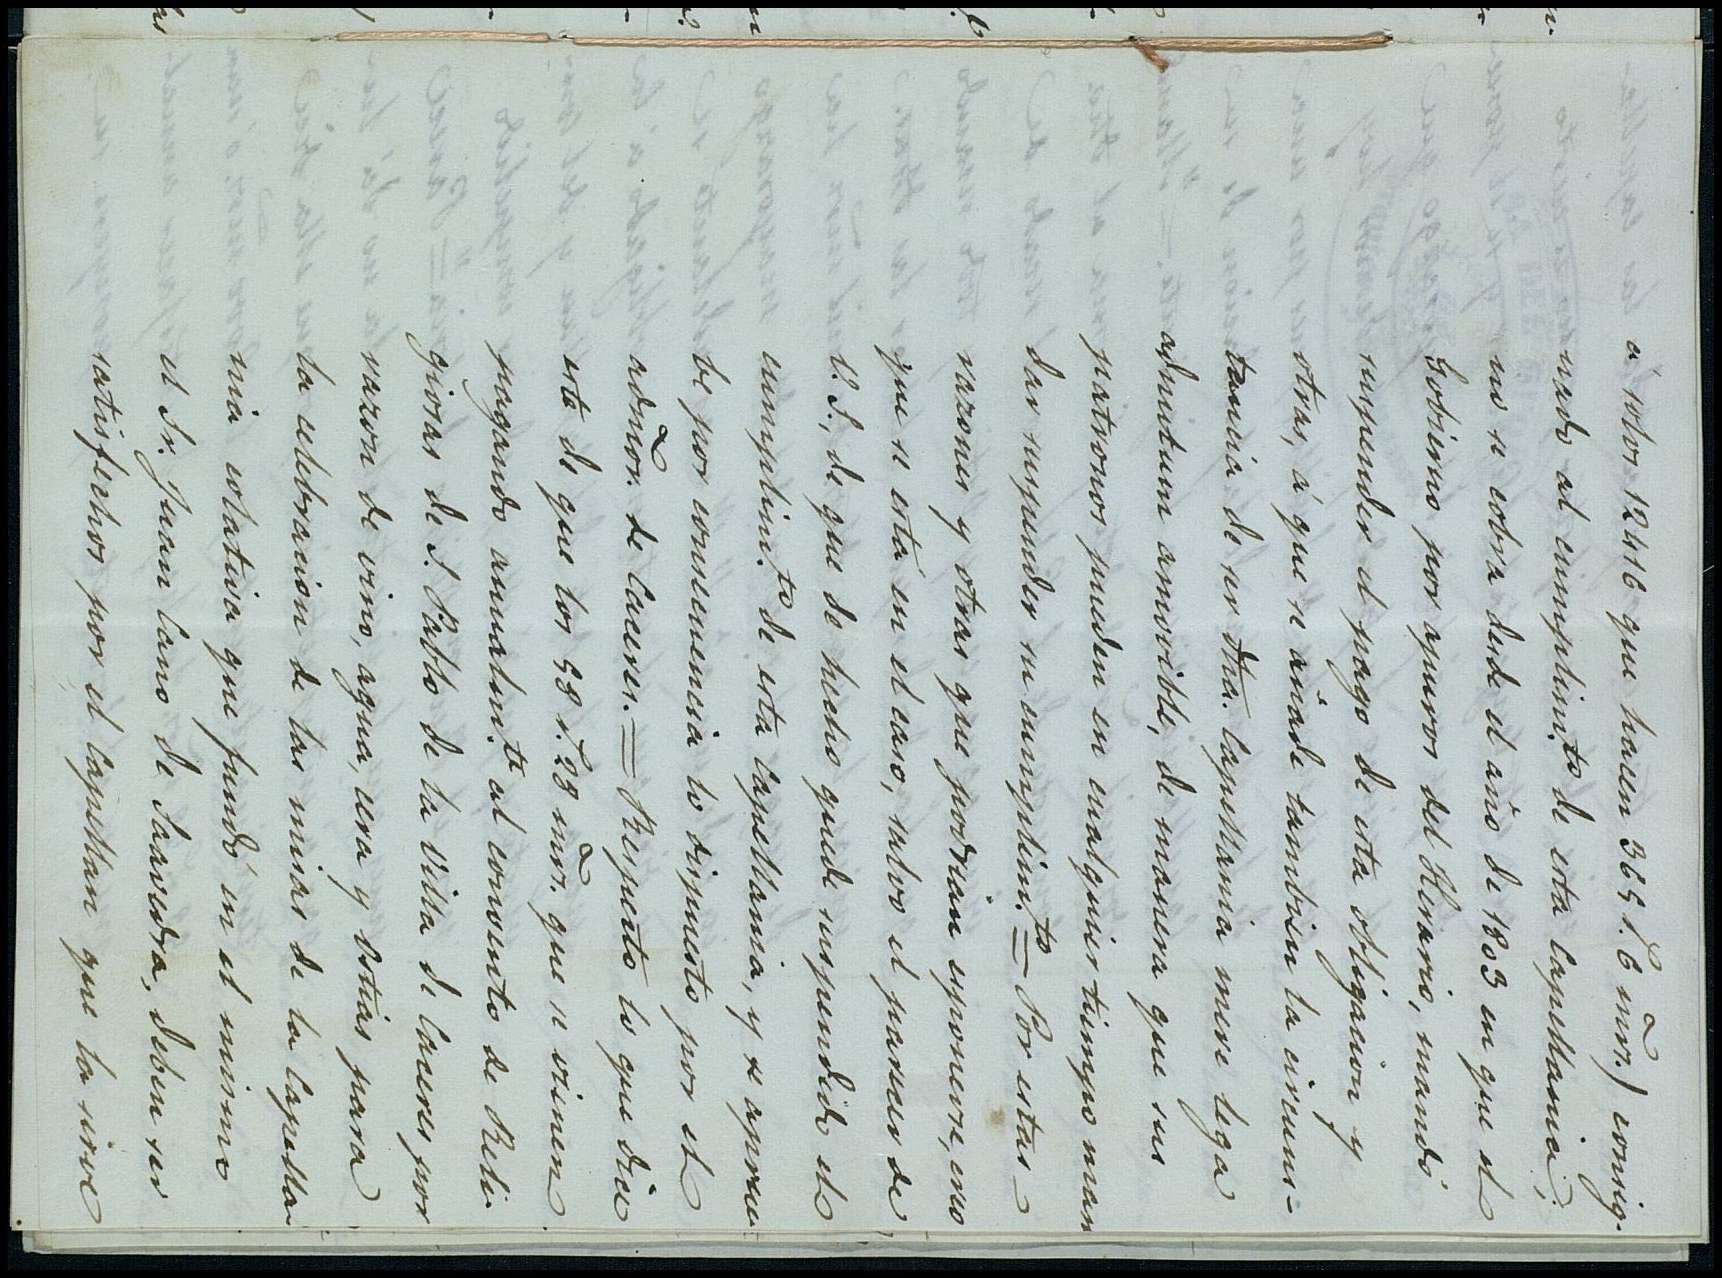 a' estos 12416 que hacen 365 r.^s 6 mrs.) consig-
nado al cumplim.^to de esta Capellania;
no se cobra desde el año de 1803 en que el
Gobierno por apuros del Herario, mandó
suspender el pago de esta obligacion y
otras, á que se añade tambien la circuns-
tancia de ser dha. Capellania mere lega
adnutum amovible, de manera que sus
patronos pueden en cualquier tiempo man
dar suspender su cumplim.^to = Por estas
razones y otras que podrian esponerse, creo
que se está en el caso, salvo el parecer de
V. S., de que de hecho quede suspendido el
cumplim.^to de esta Capellania, y se aprue-
be por consecuencia lo dispuesto por el
admor. de Caceres. = Respecto lo que dice
este de que los 58 r.^s 28 mrs. que se vienen
pagando anualm.^te al convento de Reli-
giosas de S. Pablo de la Villa de Caceres por
razon de vino, agua, cera y ostias para
la celebracion de las misas de la Capella-
nia colativa que fundó en el mismo
el Sr. Juan Cano de Saavedra, deben ser
satisfechos por el Capellan que la sirve